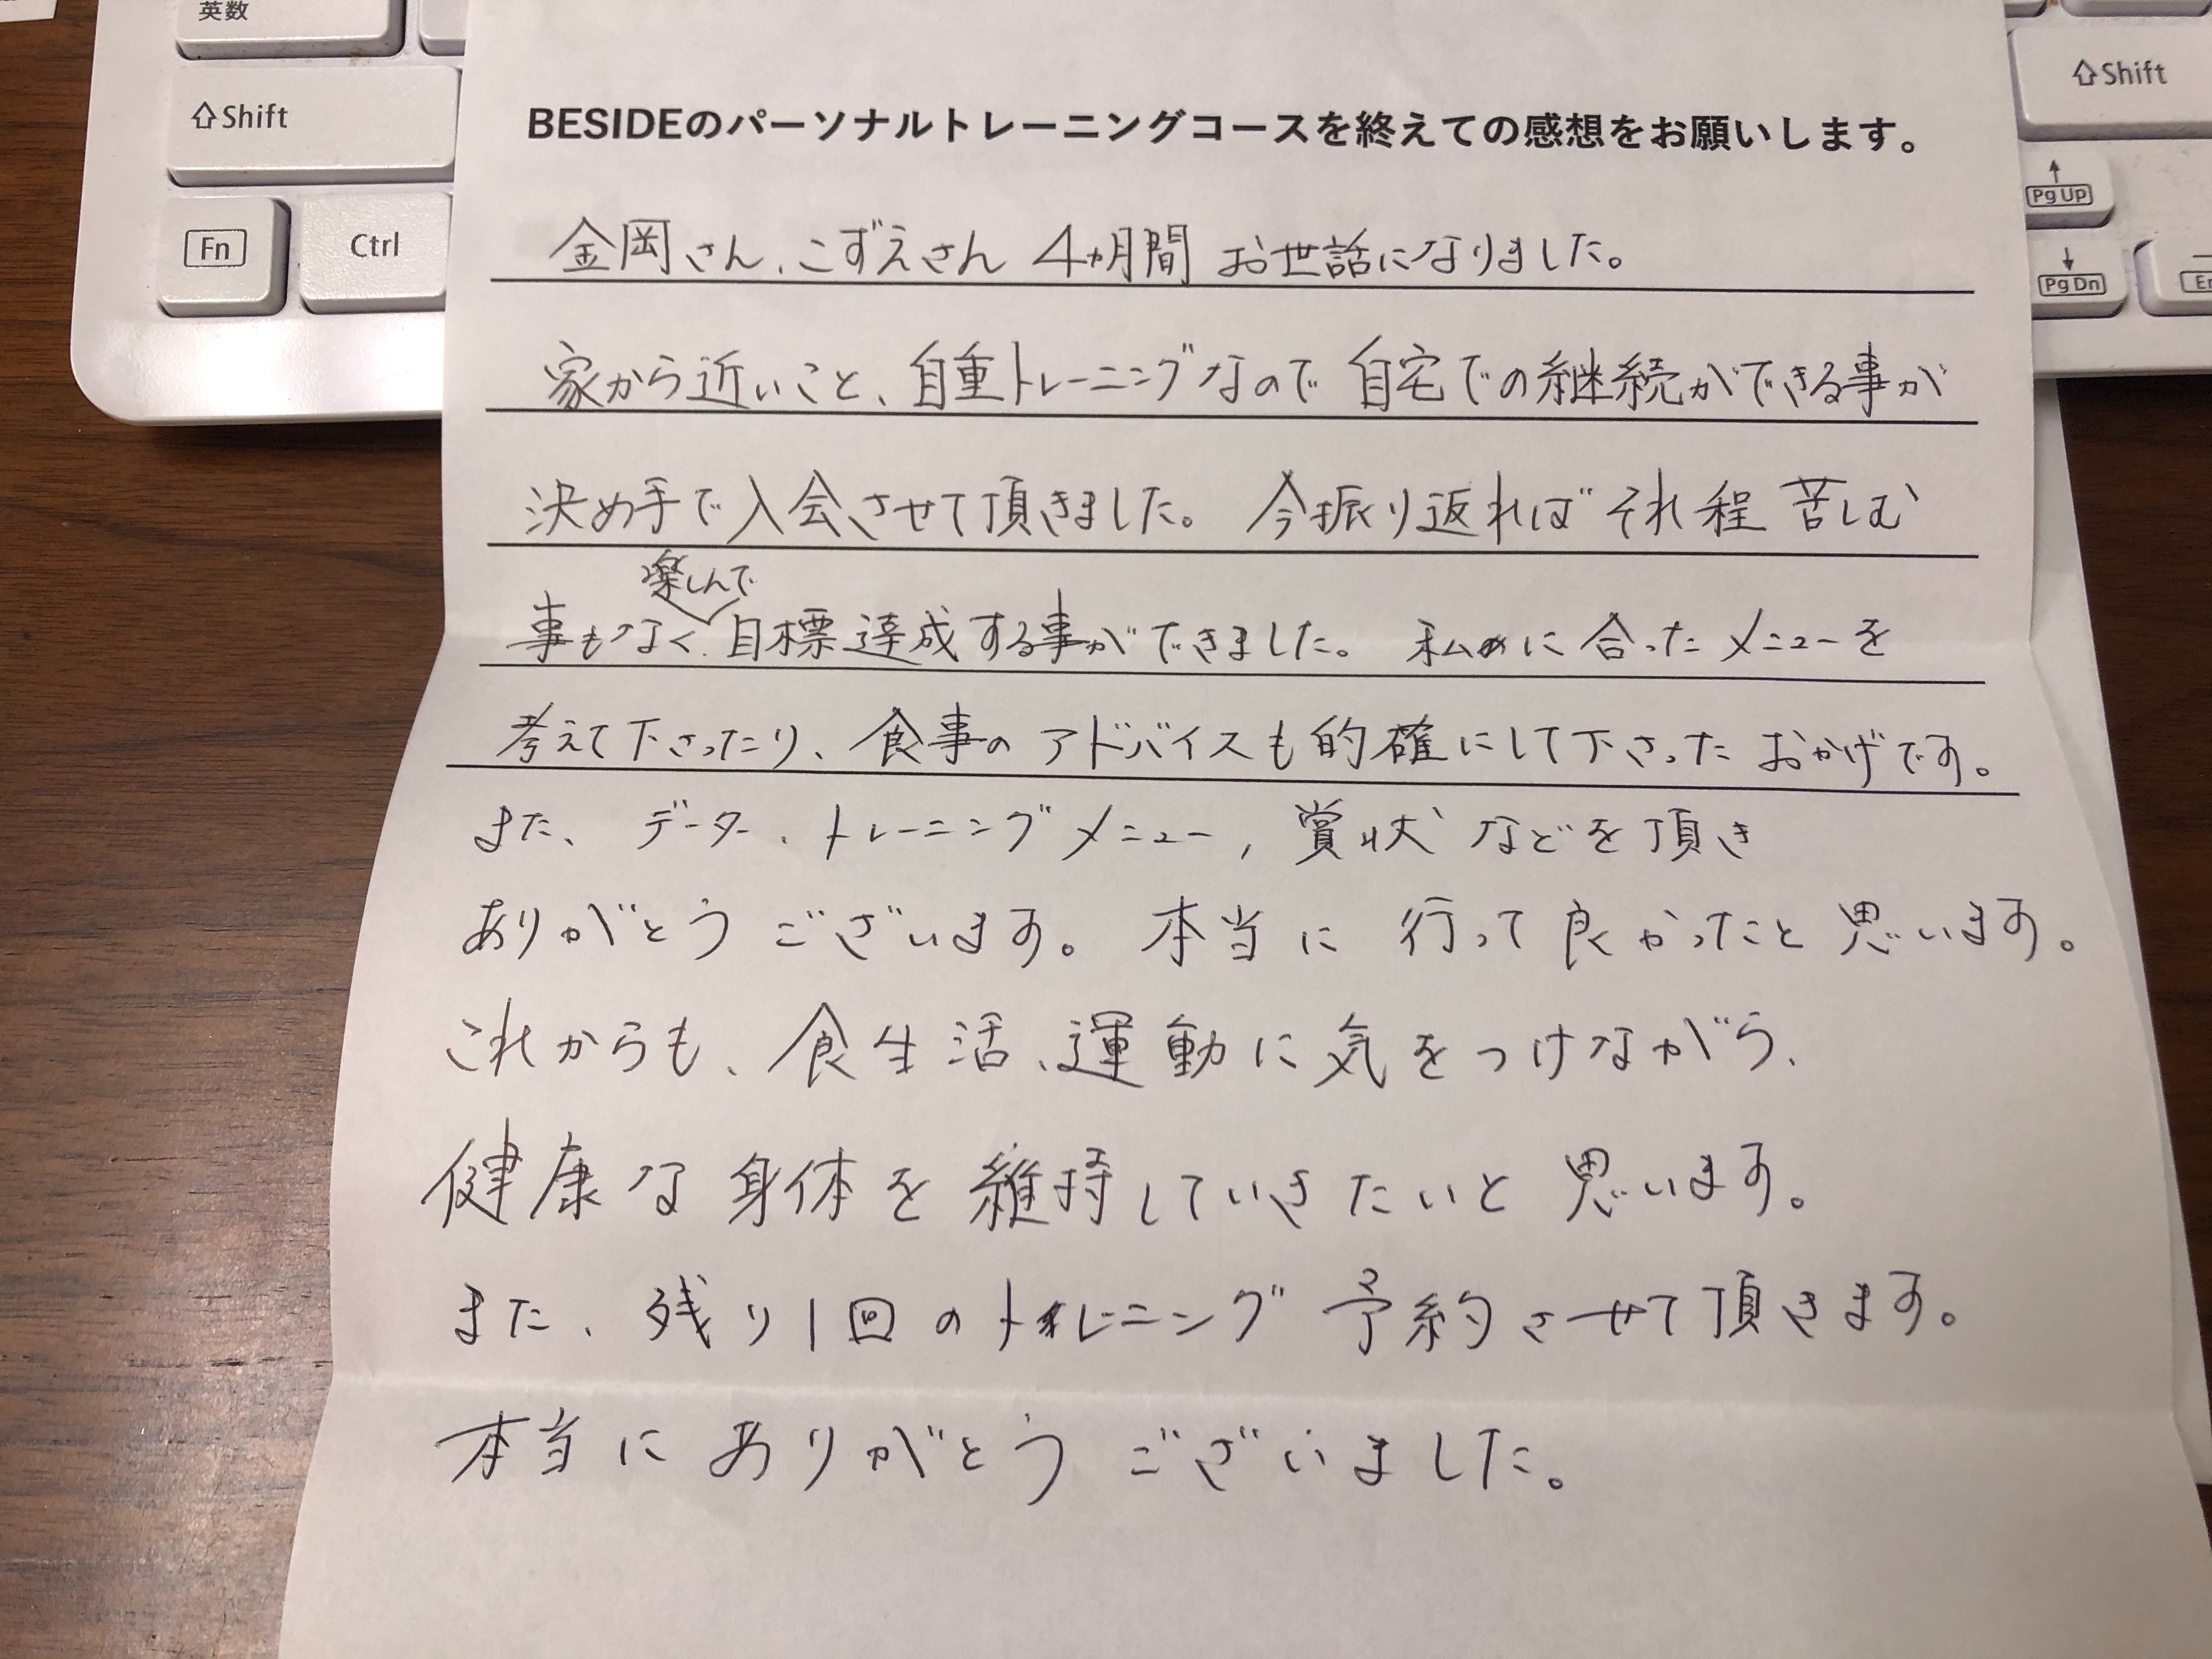 英数
⇧Shift
Fn
Ctrl
⇧Shift
↑
Pg Up
↓
Pg Dn
BESIDEのパーソナルトレーニングコースを終えての感想をお願いします。
金岡さん、こずえさん 4ヵ月間 お世話になりました。
家から近いこと、自重トレーニングなので自宅での継続ができる事が
決め手で入会させて頂きました。今振り返ればそれ程苦しむ
楽しんで
事もなく、目標達成する事ができました。私に合ったメニューを
考えて下さったり、食事のアドバイスも的確にして下さったおかげです。
また、データー、トレーニングメニュー,賞状などを頂き
ありがとうございます。本当に行って良かったと思います。
これからも、食生活、運動に気をつけながら、
健康な身体を維持していきたいと思います。
また、残り1回のトレーニング予約させて頂きます。
本当にありがとうございました。